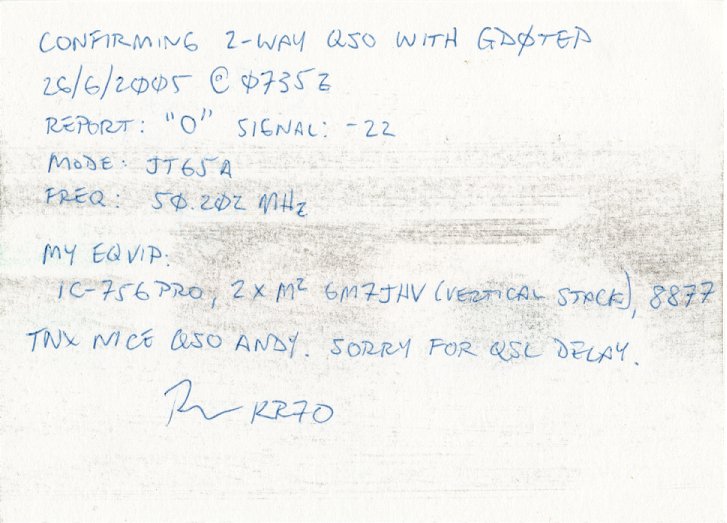 CONFIRMING 2-WAY QSO WITH GDØTEP
26/6/2005 @ Ø735Z
REPORT: "O" SIGNAL: -22
MODE: JT65A
FREQ: 5Ø.2Ø2 MHz
MY EQUIP:
IC-756PRO, 2 x M² 6M7JHV (VERTICAL STACK), 8877
TNX NICE QSO ANDY. SORRY FOR QSL DELAY.
KR7O